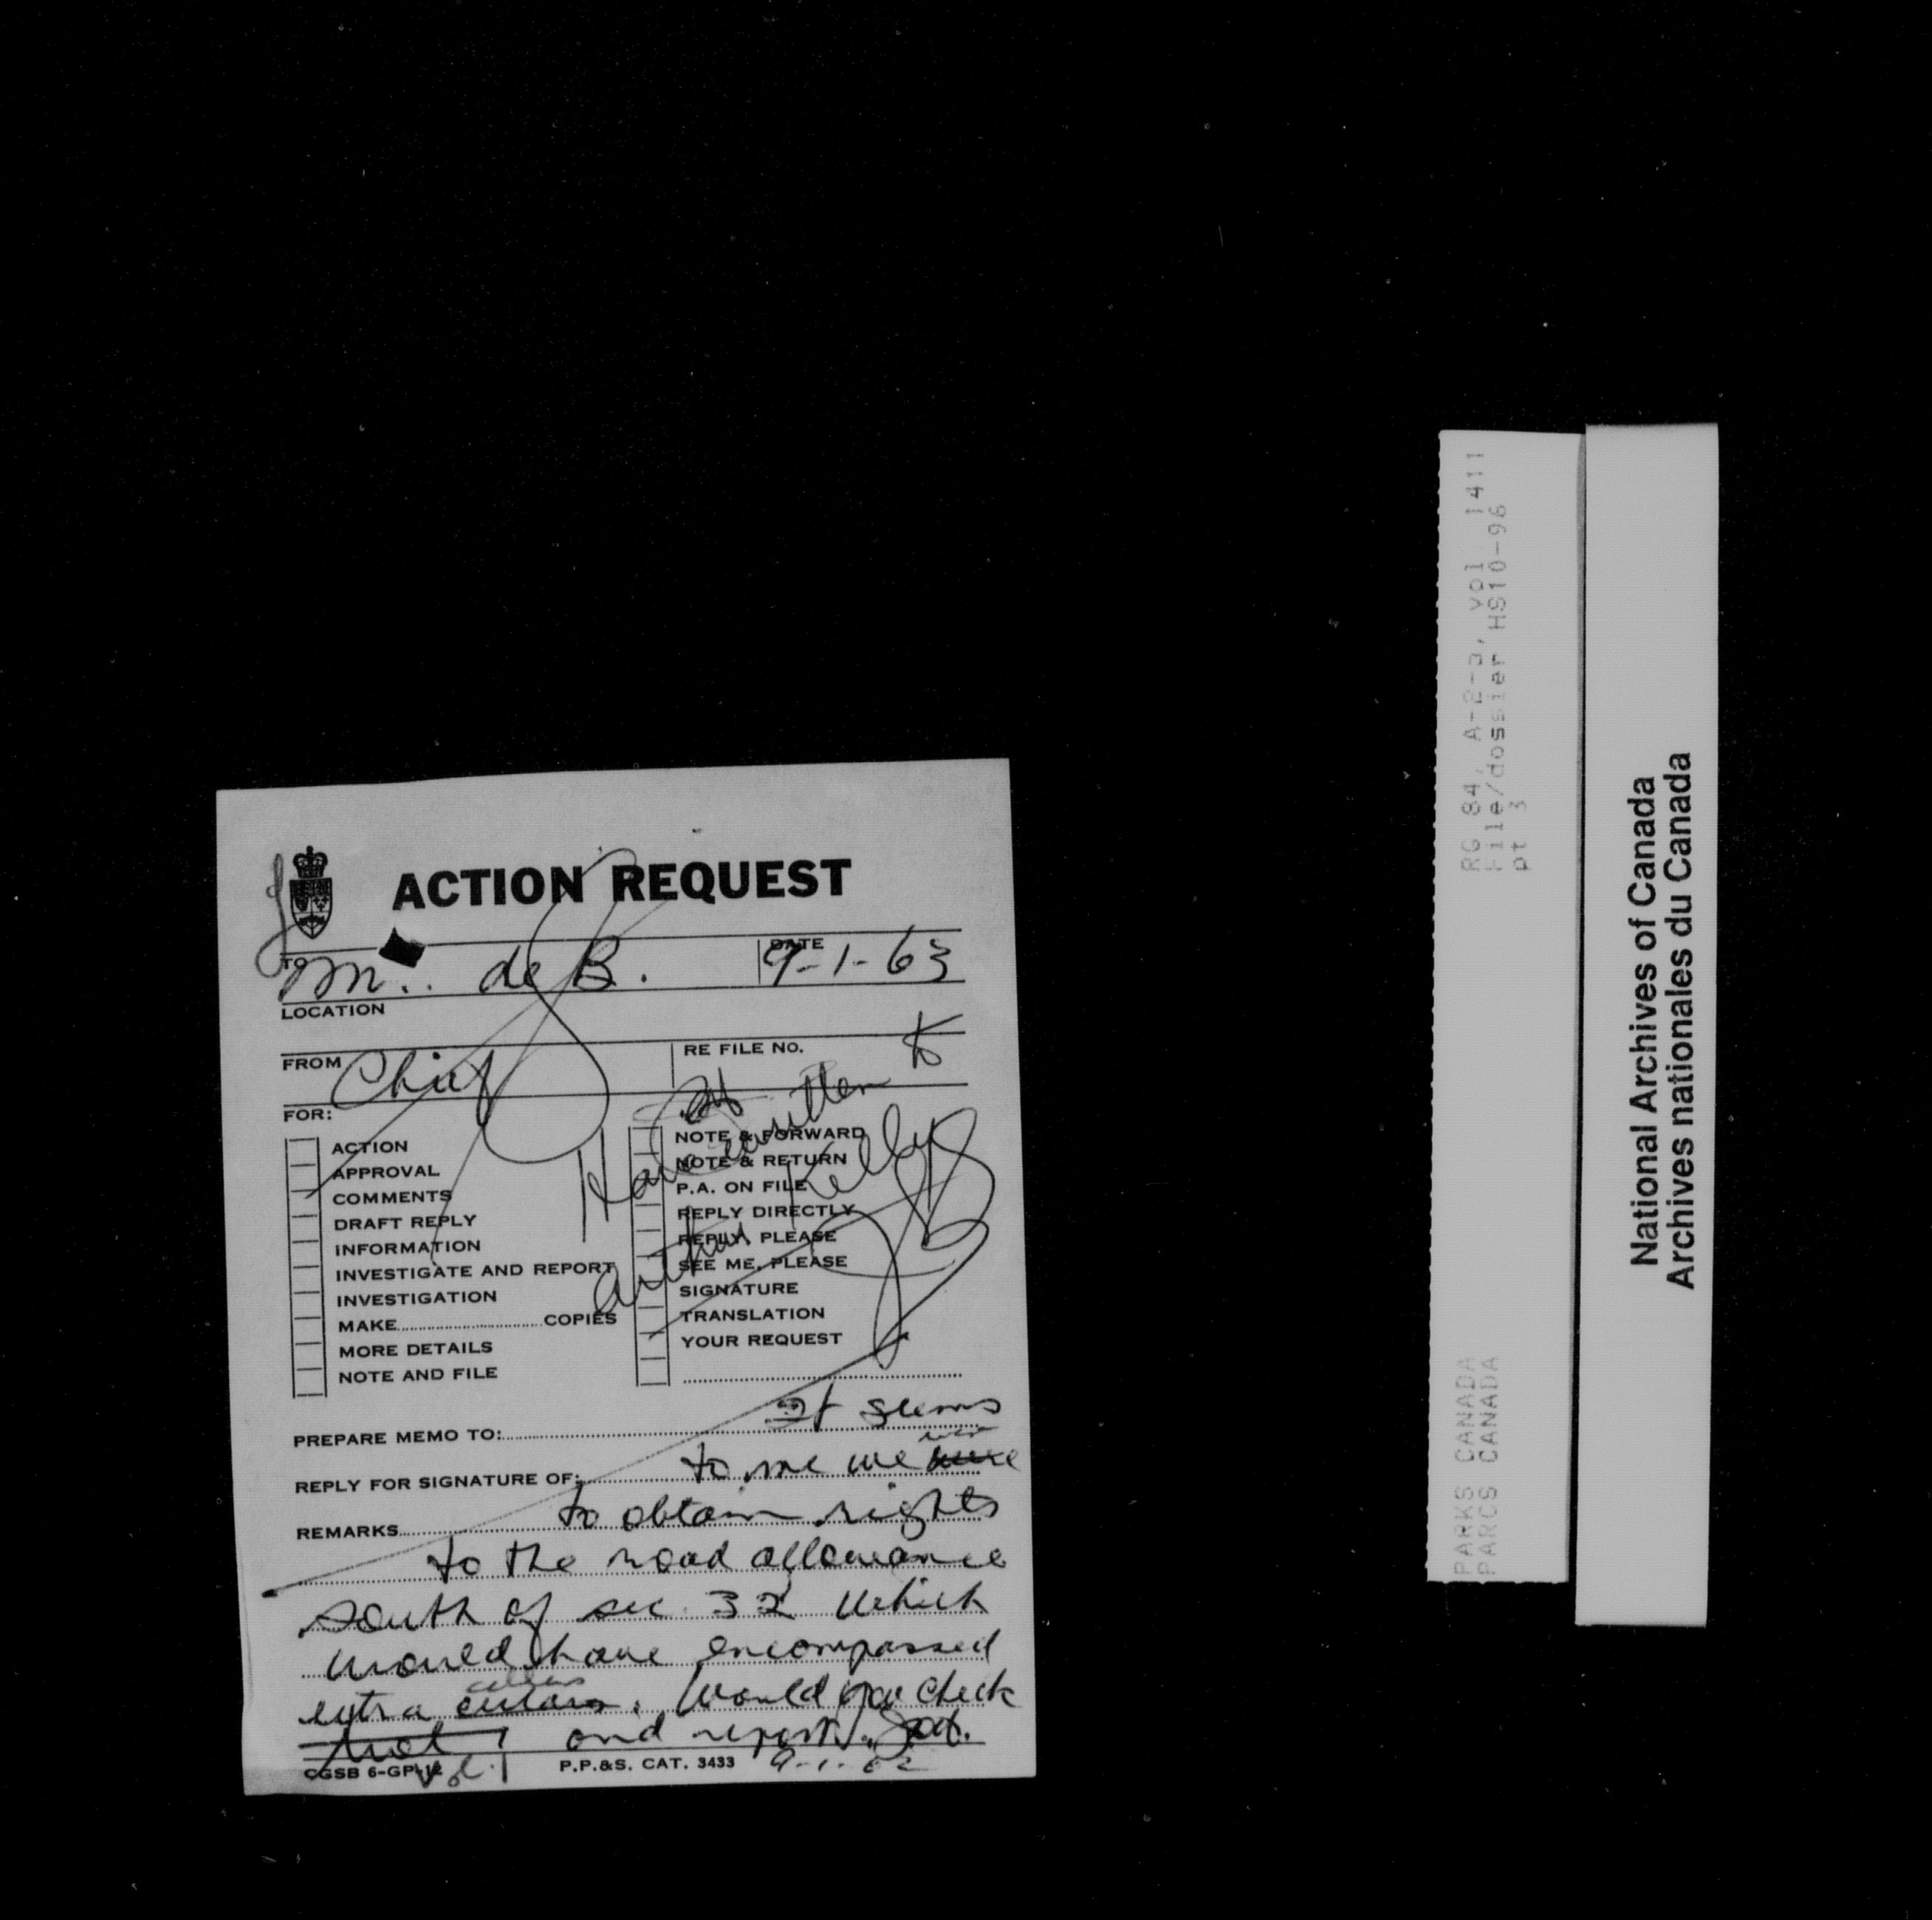 ACTION REQUEST
TO M.. de B. DATE 9-1-63
LOCATION
FROM Chief RE FILE NO.
FOR:
ACTION
APPROVAL
COMMENTS
DRAFT REPLY
INFORMATION
INVESTIGATE AND REPORT
INVESTIGATION
MAKE COPIES
MORE DETAILS
NOTE AND FILE
NOTE & FORWARD
NOTE & RETURN
P.A. ON FILE
REPLY DIRECTLY
REPLY, PLEASE
SEE ME, PLEASE
SIGNATURE
TRANSLATION
YOUR REQUEST
Have written
Arthur Kelly
PREPARE MEMO TO: It seems
REPLY FOR SIGNATURE OF: to me we
REMARKS to obtain rights
to the road allowance
south of sec. 32 which
would have encompassed
extra cellars. Would you check
and report.
Vol. 1
CGSB 6-GP-12 P.P.&S. CAT. 3433
RG 84, A-2-a, vol 1411
File/dossier HS10-96
pt 3
PARKS CANADA
PARCS CANADA
National Archives of Canada
Archives nationales du Canada